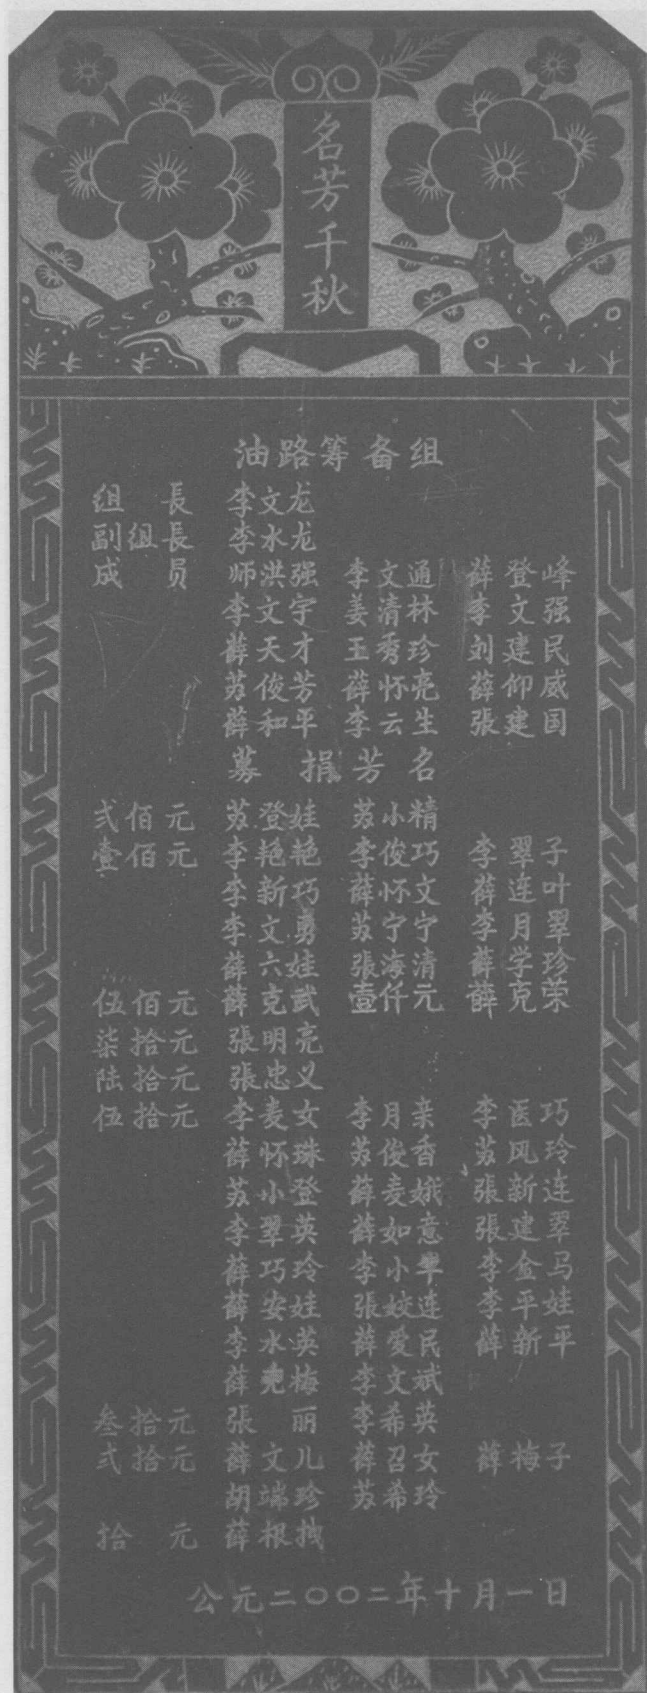 名芳千秋
油路筹备组
组長 李文龙
副组長 李水龙
成员 师洪强 李文通 薛登峰
李文宇 姜清林 李文强
薛天才 王秀珍 刘建民
苏俊芳 薛怀亮 薛仰威
薛和平 李云生 張建国
募捐芳名
弍佰元 苏登娃 苏小精
壹佰元 李艳艳 李俊巧 李翠子
李新巧 薛怀文 薛连叶
李文勇 苏宁宁 李月翠
薛六娃 張海清 薛学珍
伍佰元 薛克武 壹仟元 薛克荣
柒拾元 張明亮
陆拾元 張忠义
伍拾元 李麦女 李月亲 李医巧
薛怀珠 苏俊香 苏风玲
苏小登 薛麦娥 張新连
李翠英 薛如意 張建翠
薛巧玲 李小 李金马
薛安娃 張姣连 李平娃
李水英 薛爱民 薛新平
薛梅 李文斌
叁拾元 張丽 李希英
弍拾元 薛文儿 薛召女 薛梅子
胡端珍 苏希玲
拾元 薛根
公元二〇〇二年十月一日